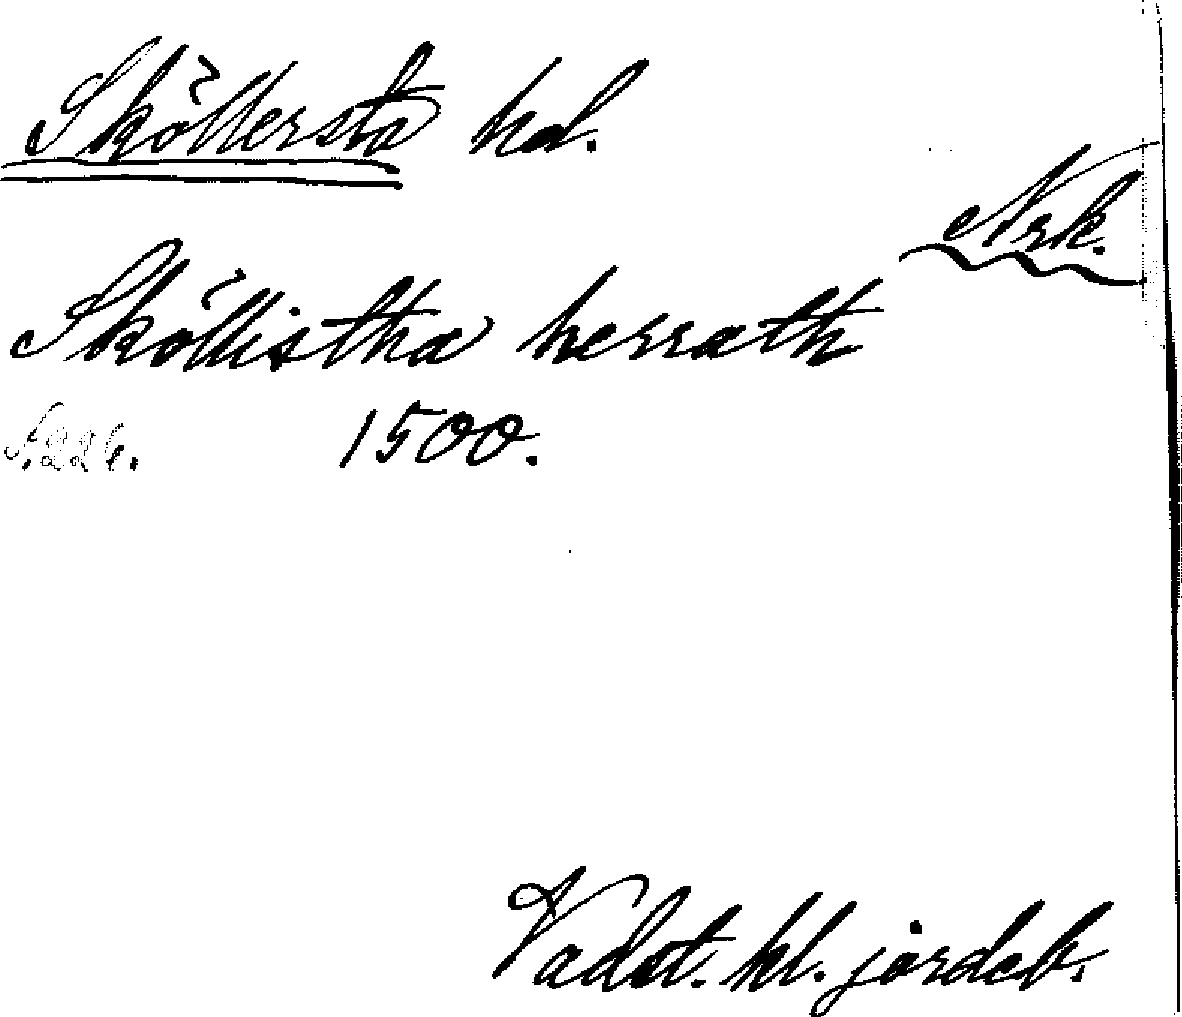 Sköllersta hd.
Nrk.
Sköllistha herrath
1500.
Vadst. kl. jordeb.